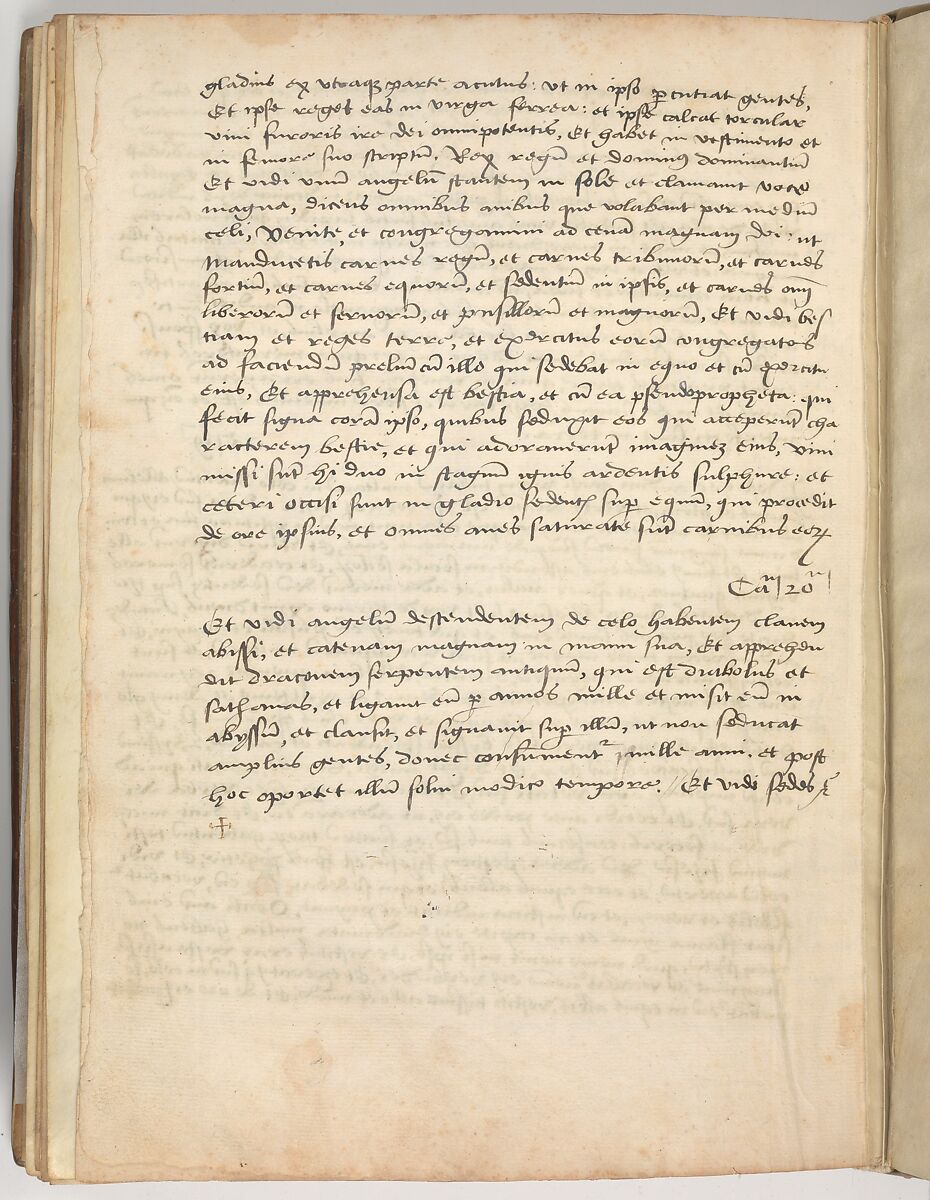 gladius ex utraqꝫ parte acutus: ut in ipso ꝑcutiat gentes,
Et ipse reget eas in virga ferrea: et ipse calcat torcular
vini furoris ire dei omnipotentis, Et habet in vestimento et
in femore suo scriptū, Rex regū et dominꝰ dominantiū
Et vidi unū angelū stantem in sole et clamavit voce
magna, dicens omnibus avibus que volabant per mediū
celi, Venite, et congregamini ad cenā magnam dei: ut
Manducetis carnes regū, et carnes tribunorū, et carnes
fortiū, et carnes equorū, et sedentiū in ipsis, et carnes oīm
liberorū et servorū, et pusillorū et magnorū, Et vidi bes
tiam et reges terre, et exercitus eorū congregatos
ad faciendū preliū cū illo qui sedebat in equo et cū exercitu
eius, Et apprehensa est bestia, et cū ea pseudopropheta: qui
fecit signa corā ipso, quibus seduxit eos qui acceperūt cha
racterem bestie, et qui adoraverūt imagineꝫ eius, vivi
missi sūt hi duo in stagnū ignis ardentis sulphure: et
ceteri occisi sunt in gladio sedentꝭ suꝑ equū, qui procedit
de ore ipsius, et omnes aves saturate sūt carnibus eoꝝ
Cam 20
Et vidi angelū descendentem de celo habentem clavem
abissi, et catenam magnam in manu sua, Et apprehen
dit draconem serpentem antiquū, qui est diabolus et
sathanas, et ligavit eū ꝑ annos mille et misit eū in
abyssū, et clausit, et signavit suꝑ illū, ut non seducat
amplius gentes, donec consumentʳ mille anni. et post
hoc oportet illū solvi modico tempore. // Et vidi sedes